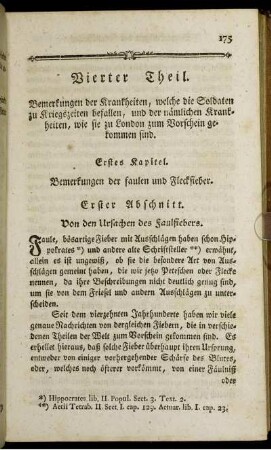 175
Vierter Theil.
Bemerkungen der Krankheiten, welche die Soldaten
zu Kriegszeiten befallen, und der nämlichen Krank-
heiten, wie sie zu London zum Vorschein ge-
kommen sind.
Erstes Kapitel.
Bemerkungen der faulen und Fleckfieber.
Erster Abschnitt.
Von den Ursachen des Faulfiebers.
Faule, bösartige Fieber mit Ausschlägen haben schon Hip-
pokrates *) und andere alte Schriftsteller **) erwähnt,
allein es ist ungewiß, ob sie die besondere Art von Aus-
schlägen gemeint haben, die wir jetzo Petechen oder Flecke
nennen, da ihre Beschreibungen nicht deutlich genug sind,
um sie von dem Friesel und andern Ausschlägen zu unter-
scheiden.
Seit dem vierzehnten Jahrhunderte haben wir viele
genaue Nachrichten von dergleichen Fiebern, die in verschie-
denen Theilen der Welt zum Vorschein gekommen sind. Es
erhellet hieraus, daß solche Fieber überhaupt ihren Ursprung,
entweder von einiger vorhergehender Schärfe des Blutes,
oder, welches noch öfterer vorkömmt, von einer Fäulniß
oder
*) Hippocrates lib. II. Popul. Sect. 3. Text. 2.
**) Aetii Tetrab. II Sect I. cap. 129. Actuar. lib. I. cap. 23,